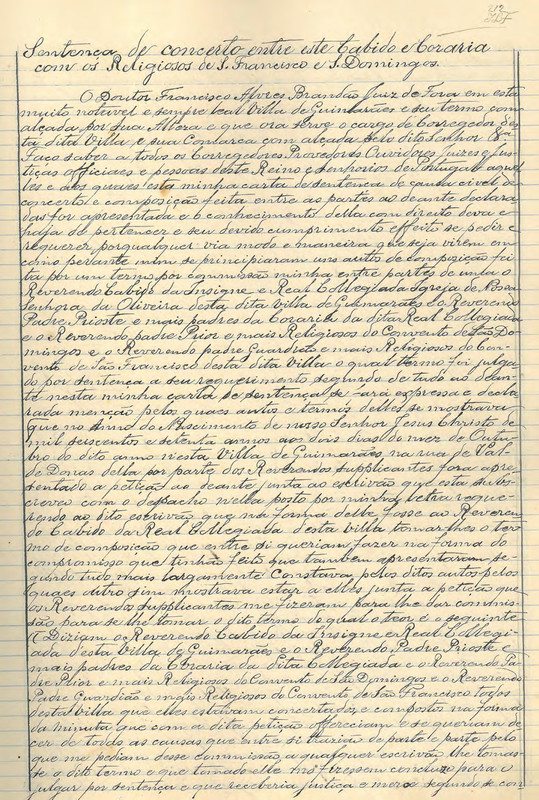 Sentença de concerto entre este Cabido e Coraria
com os Religiosos de S. Francisco e S. Domingos.
O Doutor Francisco Alvres Brandão Juiz de Fora em esta
muito notavel e sempre leal Villa de Guimarães e seu termo com
alçada por sua Alteza e que ora serve o cargo de Corregedor des
ta dita Villa e sua Comarca com alçada pelo dito Senhor &ª
Faço saber a todos os Corregedores Provedores Ouvidores Juizes e Jus-
tiças officiaes e pessoas deste Reino e senhorios de Portugal aquel
les e aos quaes esta minha carta de sentença de cauza civel de
concerto e composição feita entre as partes ao deante declara
das for apresentada e o conhecimento della com direito deva e
haja de pertencer e seu devido cumprimento effeito se pedir e
requerer por qualquer via modo e maneira que seja virem em
como perante mim se principiaram uns autos de composição fei
ta por um termo por commissão minha entre partes de uma o
Reverendo Cabido da Insigne e Real Collegiada Igreja de Nossa
Senhora da Oliveira desta dita Villa de Guimarães e o Reverendo
Padre Prioste e mais padres da Coraria da dita Real Collegiada
e o Reverendo padre Prior e mais Religiosos do Convento de São Do-
mingos e o Reverendo padre Guardião e mais Religiosos do Con-
vento de São Francisco desta dita Villa o qual termo foi julga
do por sentença a seu requerimento segundo de tudo ao dean-
te nesta minha carta de sentença se fará expressa e decla
rada menção pelos quaes autos e termos delles se mostrava
que no Anno do Nascimento de nosso Senhor Jesus Christo de
mil seiscentos e setenta annos aos dois dias do mez de Outu
bro do dito anno nesta Villa de Guimarães na rua de Val-
de Donas della por parte dos Reverendos Supplicantes fora apre
sentado a petição ao deante junta ao escrivão que esta subs-
creveu com o despacho nella posto por minha letra reque-
rendo ao dito escrivão que na forma delle fosse ao Reveren
do Cabido da Real Collegiada desta Villa tomar-lhes o ter
mo de composição que entre si queriam fazer na forma do
compromisso que tinham feito que tambem apresentaram se-
gundo tudo mais largamente Constava pelos ditos autos pelos
quaes outro sim mostrava estar a elles junta a petição que
os Reverendos Supplicantes me fizeram para lhe dar commis-
são para se lhe tomar o dito termo da qual o teor é o seguinte
Diziam o Reverendo Cabido da Insigne e Real Collegi-
ada desta Villa de Guimarães e o Reverendo Padre Prioste e
mais padres da Coraria da dita Collegiada e o Reverendo Pa
dre Prior e mais Religiosos do Convento de São Domingos e o Reverendo
Padre Guardião e mais Religiosos do Convento de São Francisco todos
desta Villa que elles estavam concertados e compostos na forma
da minuta que com a dita petição offereciam e se queriam de
cer de todas as causas que entre si traziam de parte a parte pelo
que me pediam desse commissão a qualquer escrivão lhe tomas-
se o dito termo e que tomado elle m'o fizessem concluzo para o
julgar por sentença e que receberia justiça e mercê segundo se con